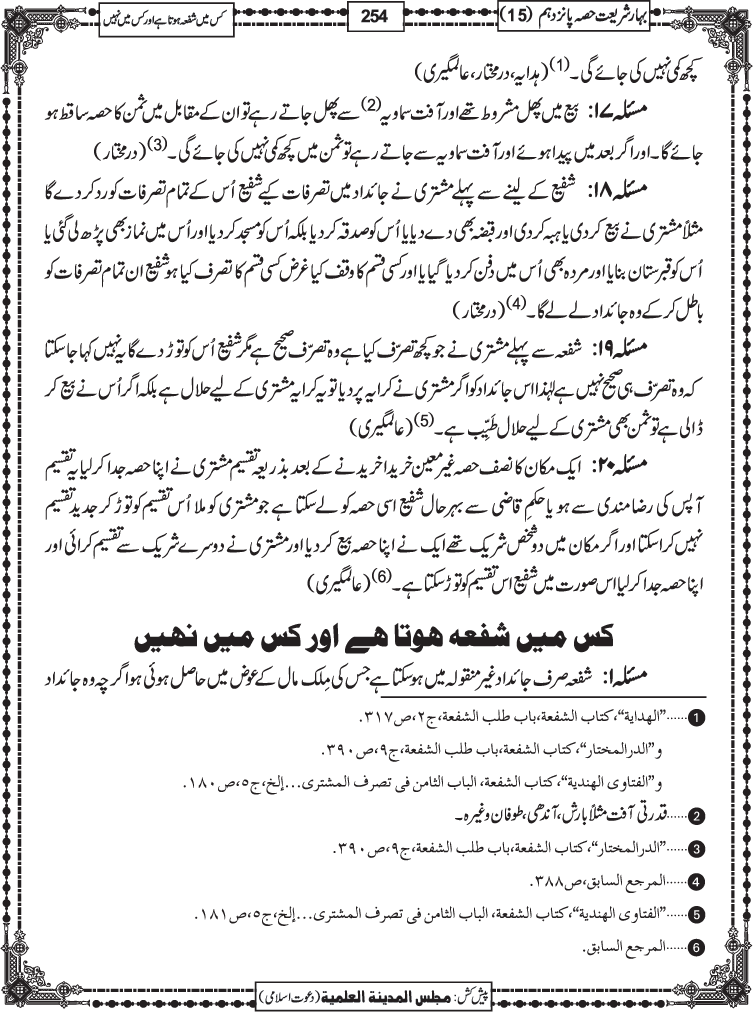 بہارِ شریعت حصہ پانزدہم (15)
254
کس میں شفعہ ہوتا ہے اور کس میں نہیں
کچھ کمی نہیں کی جائے گی۔(1) (ہدایہ، درمختار، عالمگیری)
مسئلہ ۱۷: بیع میں پھل مشروط تھے اور آفت سماویہ(2) سے پھل جاتے رہے تو ان کے مقابل میں ثمن کا حصہ ساقط ہو
جائے گا۔ اور اگر بعد میں پیدا ہوئے اور آفت سماویہ سے جاتے رہے تو ثمن میں کچھ کمی نہیں کی جائے گی۔(3) (درمختار)
مسئلہ ۱۸: شفیع کے لینے سے پہلے مشتری نے جائداد میں تصرفات کیے شفیع اُس کے تمام تصرفات کو رد کردے گا
مثلاً مشتری نے بیع کر دی یا ہبہ کر دی اور قبضہ بھی دے دیا یا اُس کو صدقہ کر دیا بلکہ اُس کو مسجد کر دیا اور اُس میں نماز بھی پڑھ لی گئی یا
اُس کو قبرستان بنایا اور مردہ بھی اُس میں دفن کر دیا گیا یا اور کسی قسم کا وقف کیا غرض کسی قسم کا تصرف کیا ہو شفیع ان تمام تصرفات کو
باطل کر کے وہ جائداد لے لے گا۔(4) (درمختار)
مسئلہ ۱۹: شفعہ سے پہلے مشتری نے جو کچھ تصرّف کیا ہے وہ تصرّف صحیح ہے مگر شفیع اُس کو توڑ دے گا یہ نہیں کہا جا سکتا
کہ وہ تصرّف ہی صحیح نہیں ہے لہٰذا اس جائداد کو اگر مشتری نے کرایہ پر دیا تو یہ کرایہ مشتری کے لیے حلال ہے بلکہ اگر اُس نے بیع کر
ڈالی ہے تو ثمن بھی مشتری کے لیے حلال طَیِّب ہے۔(5) (عالمگیری)
مسئلہ ۲۰: ایک مکان کا نصف حصہ غیر معین خریدا خریدنے کے بعد بذریعہ تقسیم مشتری نے اپنا حصہ جدا کر لیا یہ تقسیم
آپس کی رضا مندی سے ہو یا حکمِ قاضی سے بہر حال شفیع اسی حصہ کو لے سکتا ہے جو مشتری کو ملا اُس تقسیم کو توڑ کر جدید تقسیم
نہیں کرا سکتا اور اگر مکان میں دو شخص شریک تھے ایک نے اپنا حصہ بیع کر دیا اور مشتری نے دوسرے شریک سے تقسیم کرائی اور
اپنا حصہ جدا کر لیا اس صورت میں شفیع اس تقسیم کو توڑ سکتا ہے۔(6) (عالمگیری)
کس میں شفعہ ہوتا ہے اور کس میں نہیں
مسئلہ ۱: شفعہ صرف جائداد غیر منقولہ میں ہو سکتا ہے جس کی مِلک مال کے عوض میں حاصل ہوئی ہو اگرچہ وہ جائداد
1......"الهداية"، كتاب الشفعة، باب طلب الشفعة، ج٢، ص٣١٧.
و"الدرالمختار"، كتاب الشفعة، باب طلب الشفعة، ج٩، ص٣٩٠.
و"الفتاوى الهندية"، كتاب الشفعة، الباب الثامن في تصرف المشترى...إلخ، ج٥، ص١٨٠.
2......قدرتی آفت مثلاً بارش، آندھی، طوفان وغیرہ۔
3......"الدرالمختار"، كتاب الشفعة، باب طلب الشفعة، ج٩، ص٣٩٠.
4......المرجع السابق، ص٣٨٨.
5......"الفتاوى الهندية"، كتاب الشفعة، الباب الثامن في تصرف المشترى...إلخ، ج٥، ص١٨١.
6......المرجع السابق.
پیش کش: مجلس المدينة العلمية (دعوت اسلامی)